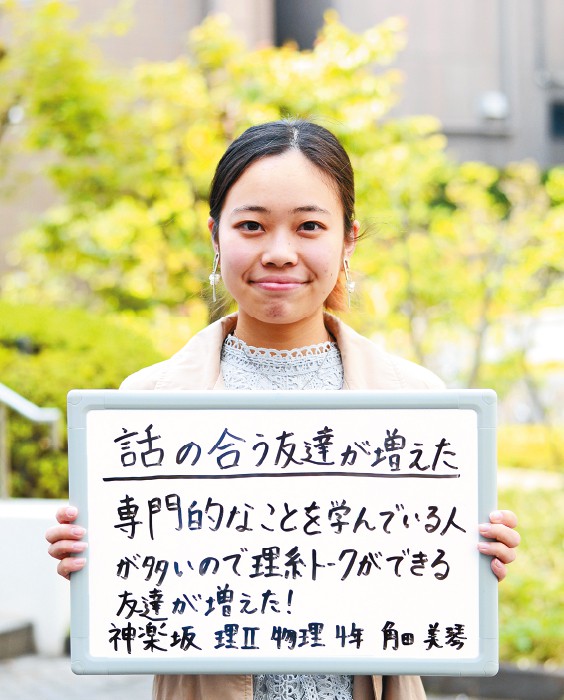 話の合う友達が増えた
専門的なことを学んでいる人
が多いので理系トークができる
友達が増えた!
神楽坂 理Ⅱ 物理 4年 角田 美琴